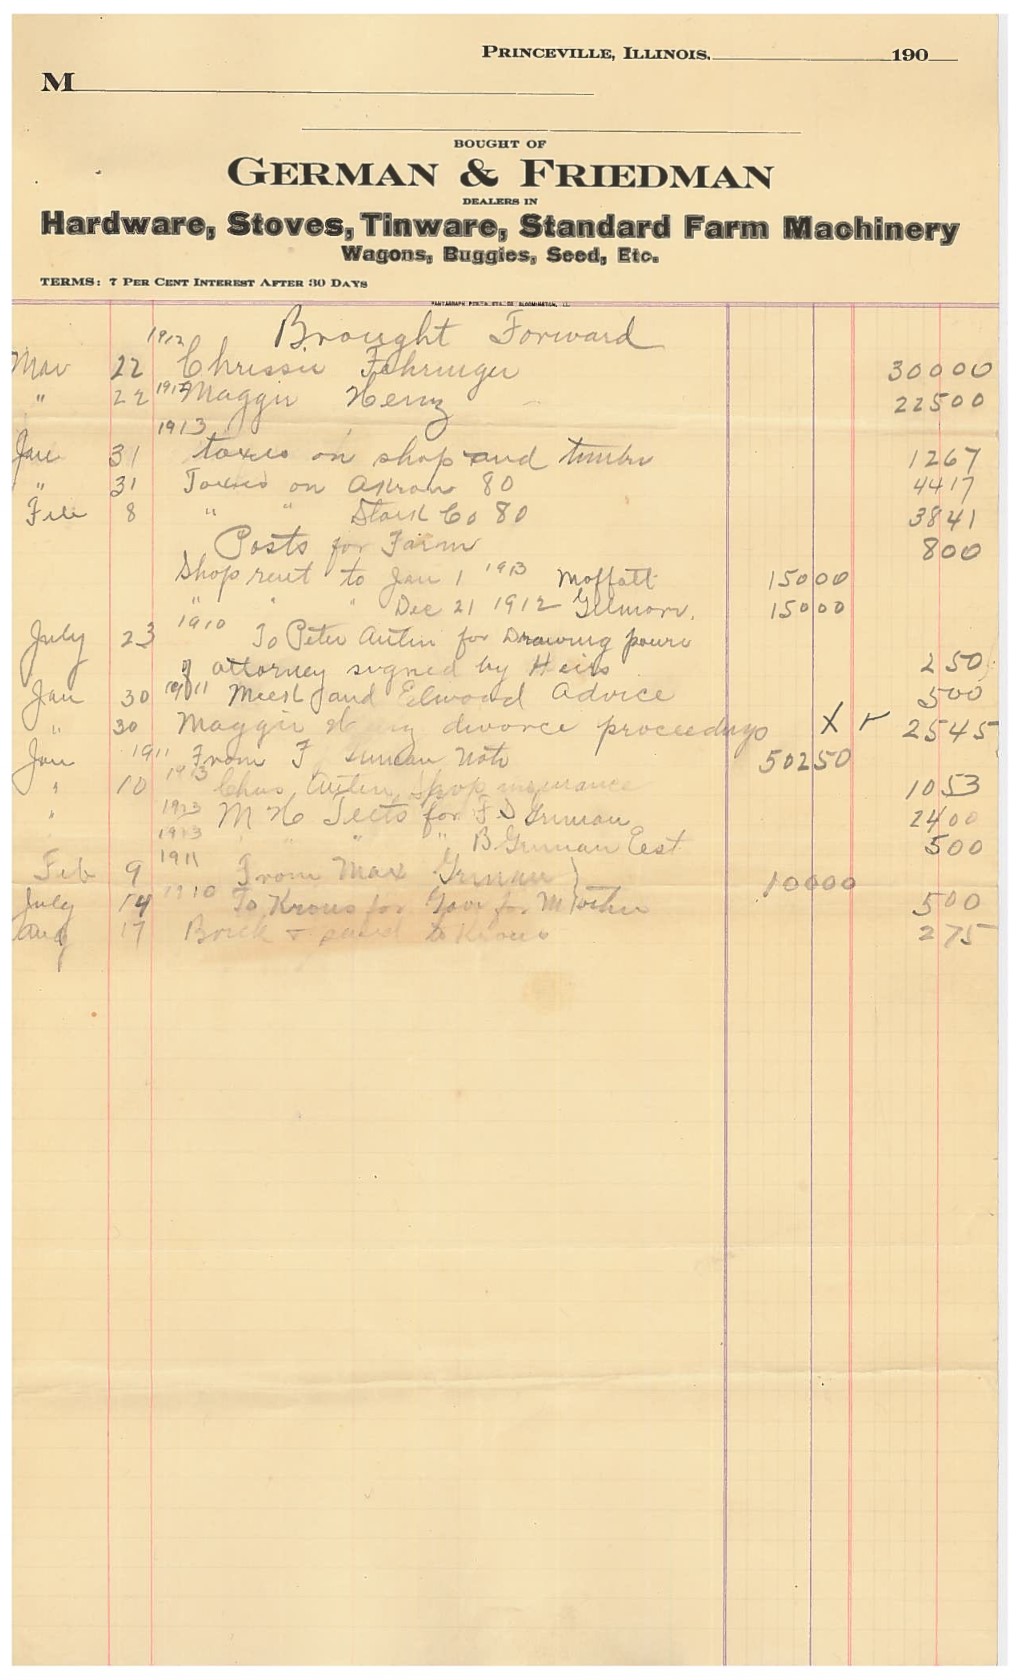 PRINCEVILLE, ILLINOIS, 190
M
BOUGHT OF
GERMAN & FRIEDMAN
DEALERS IN
Hardware, Stoves, Tinware, Standard Farm Machinery
Wagons, Buggies, Seed, Etc.
TERMS: 7 PER CENT INTEREST AFTER 30 DAYS
1912 Brought Forward
Mar 22 Chrissie Fehringer 30000
" 22 1912 Maggie Henz 22500
1913
Jan 31 taxes on shop and timber 1267
" 31 Taxes on Akron 80 4417
Feb 8 " " Stark Co 80 3841
Posts for Farm 800
Shop rent to Jan 1 1913 Moffatt 15000
" " " Dec 21 1912 Gilmore. 15000
1910
July 23 To Peter Autin for Drawing power
of attorney signed by Heirs 250
Jan 30 1911 and Elwood Advice 500
" 30 Maggie divorce proceedings X 2545
Jan 1911 From F German Note 50250
" 10 1913 Chas Autin Shop insurance 1053
" 1913 M H Teets for F D German 2400
1913 " " " B German Est 500
Feb 9 1911 From Max German } 10000
July 14 1910 To Krous for for Mother 500
Aug 17 Brick & to Krous 275